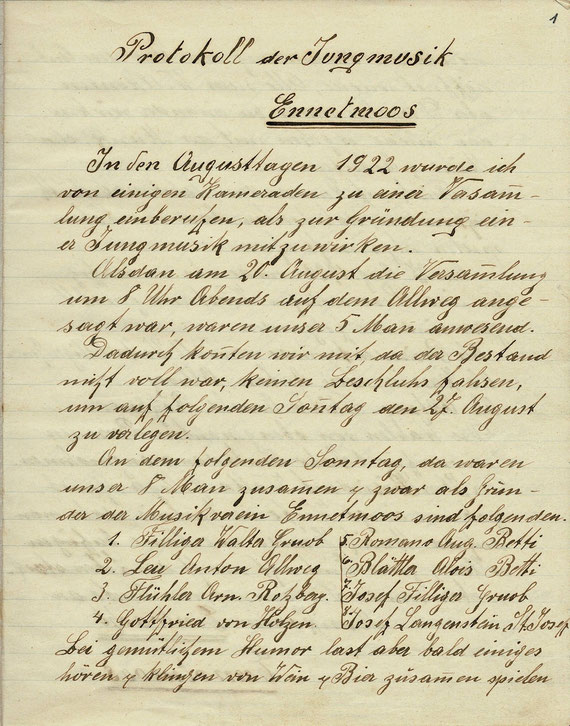 1
Protokoll der Jungmusik
Ennetmoos
In den Augusttagen 1922 wurde ich
von einigen Kameraden zu einer Versam̅-
lung einberufen, als zur Gründung ein-
er Jungmusik mitzuwirken.
Alsdan am 20. August die Versam̅lung
um 8 Uhr Abends auf dem Allweg ange-
sagt war, waren unser 5 Man anwesend.
Dadurch kon̅ten wir mit da der Bestand
nicht voll war, keinen Beschluhs fahsen,
um auf folgenden Son̅tag den 27. August
zu verlegen.
An dem folgenden Sonntag, da waren
unser 8 Man zusam̅en y zwar als Grün-
der der Musikverein Ennetmoos sind folgenden.
1. Filliger Walter Gruob
2. Leu Anton Allweg
3. Flühler Arn. Rohberg.
4. Gottfried von Holzen
5. Romano Aug. Betti
6. Blättler Alois Betti
7. Josef Filliger Gruob
8. Josef Langenstein St. Josef
Bei gemütlichem Humor last aber bald einiges
hören y klingen von Wein y Bier zusam̅en spielen